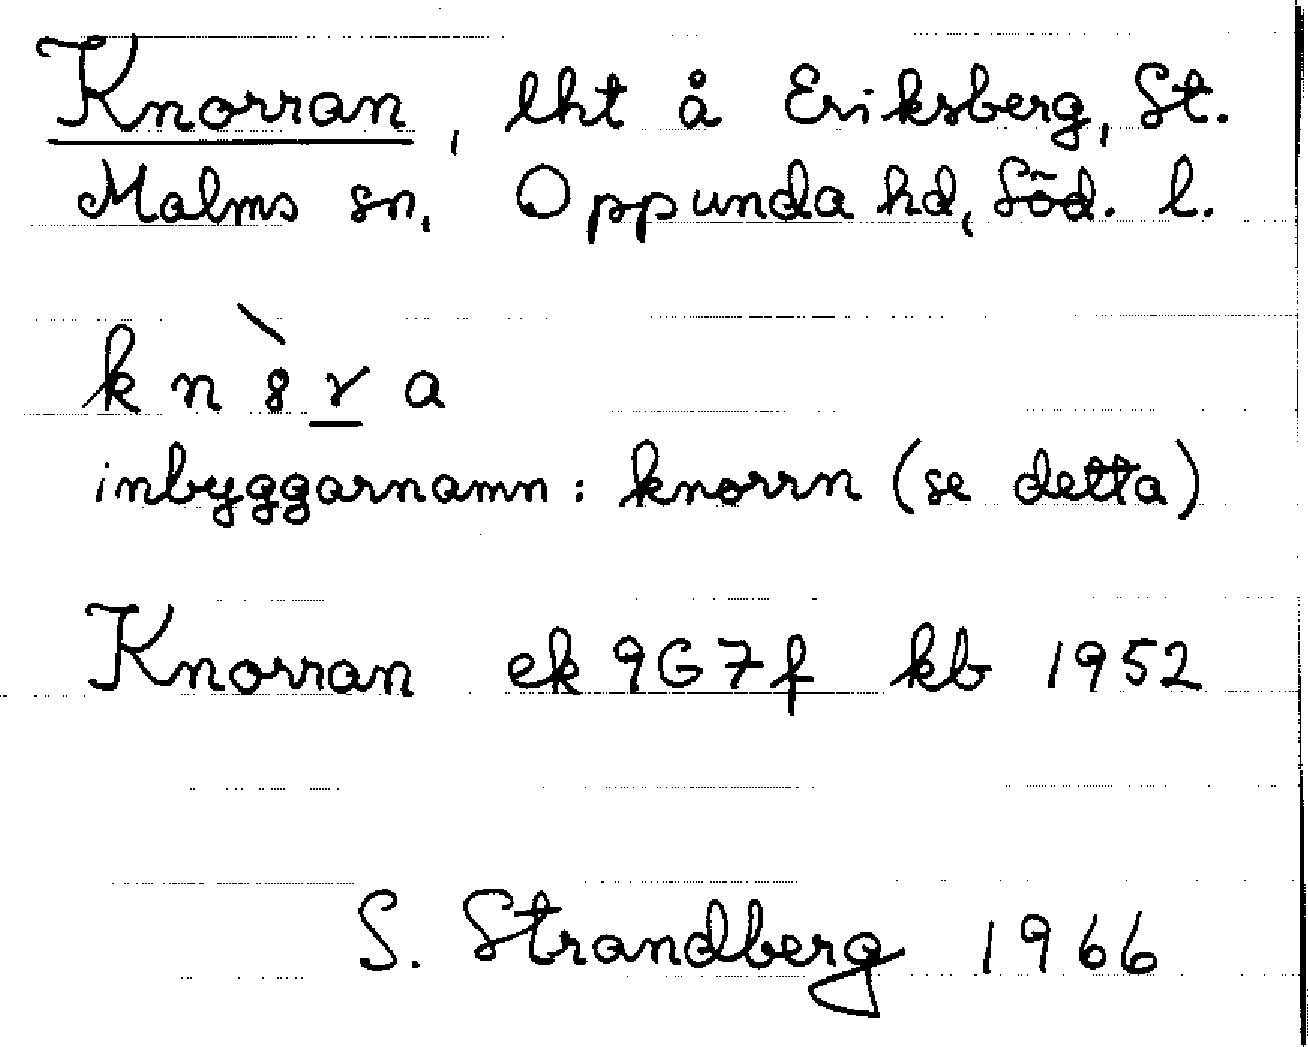 Knorran, lht å Eriksberg, St.
Malms sn, Oppunda hd, Söd. l.
k n 8̀ r̲ a
inbyggarnamn: knorrn (se detta)
Knorran ek 9G7f kb 1952
S. Strandberg 1966